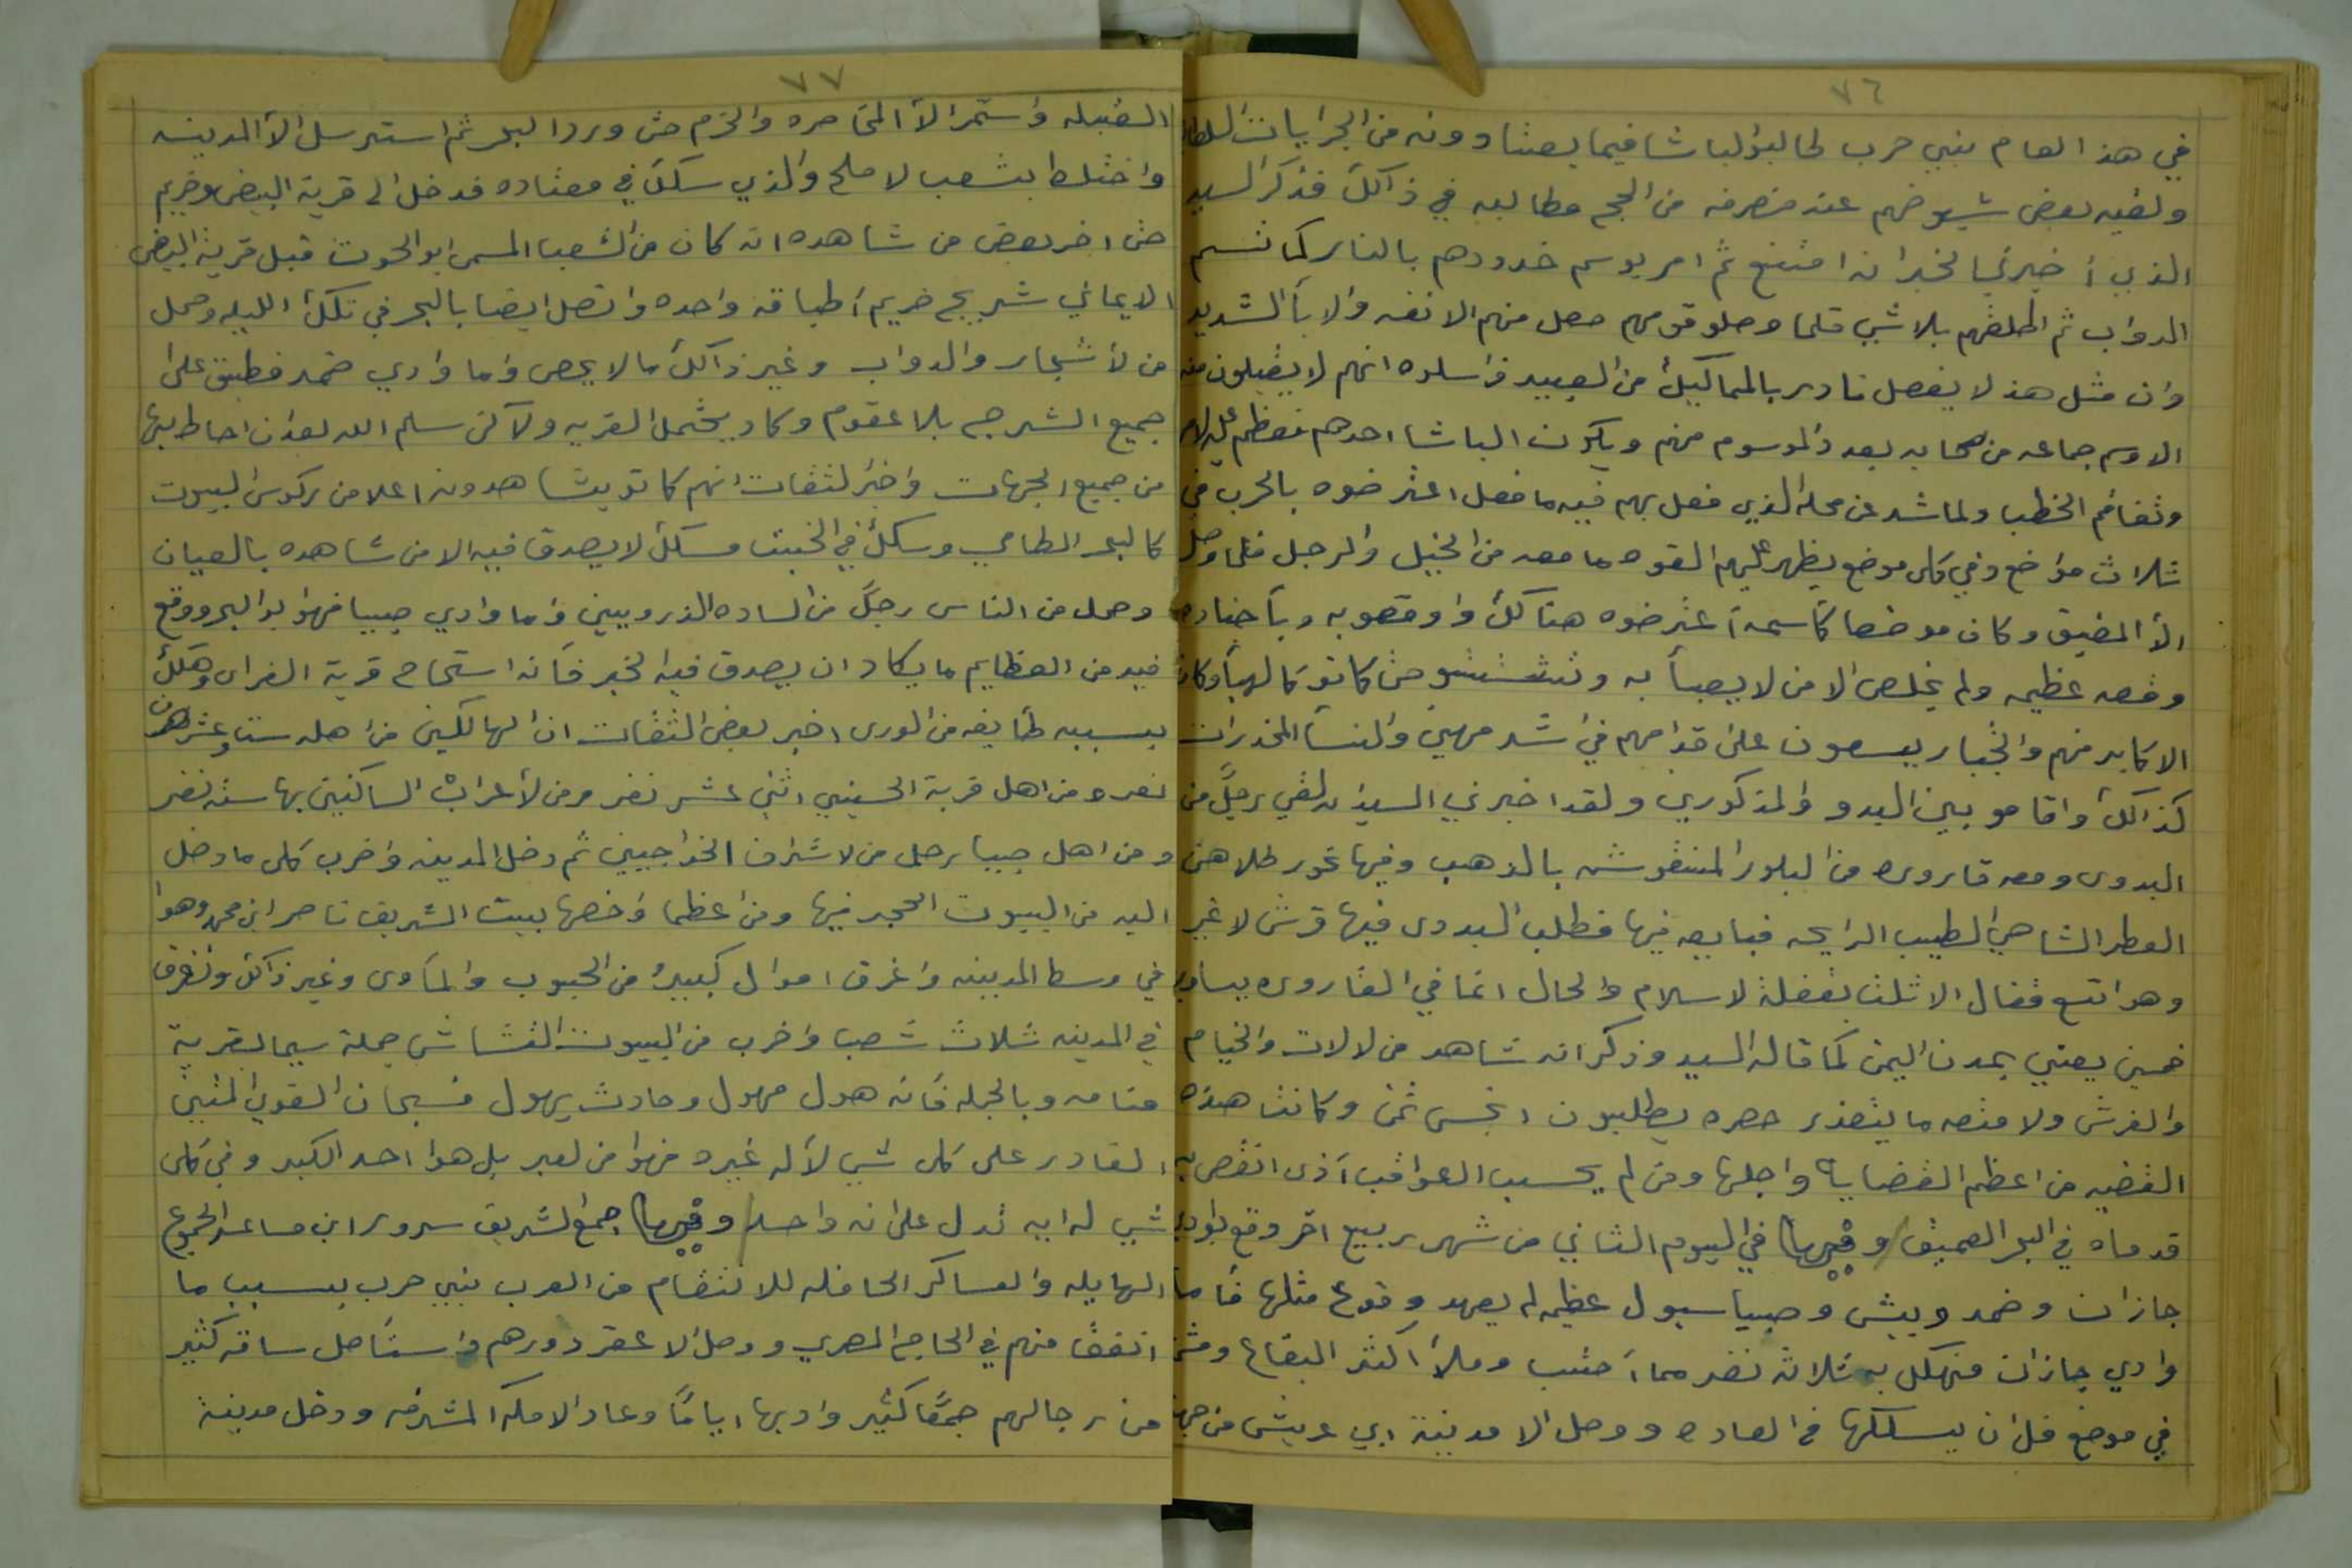 ٧٦
في هذ العام بنيي حرب طالبوُ لباشا فيما يعتادونه من الجرايات
ولقيه بعض شيوخهم عند منصرفه من الحج مطالبه في ذالك فذكر السيد
الذي أخبرني الخبر انه امتنع ثم امر بوسم خدودهم بالنار كما تسم
الدواب ثم اطلقهم بلا شي فلما وصلو قومهم حصل منهم الانفه والابأ الشديد
وان مثل هذ لا يفعل نادر بالمماليك من العبيد
الا وسم جماعه من بعد والموسوم منهم ويكون الباشا احدهم فعظم
وتفاقم الخطب ولما شد عن محله الذي فعل بهم فيه ما فعل اعترضوه بالحرب في
ثلاث مواضع وفي كل موضع يظهر عليهم القوه ما معه من الخيل والرجل فلما وصل
الا المضيق وكان موضعا أعترضوه هنالك واوقعوبه وبأجناده
وقعه عظيمه ولم يخلص الا من لا يعبأ به وتشتتو حتى كانو كالهبأ وكان
الاكابر منهم والخيار يسعون على قدامهم في اشد مهين والنسأ المخدرات
كذالك واقامو بين البدو والمذكورين ولقد اخبرني السيد انه لقي رجلً من
البدوى ومعه قاروره من البلور المنقوش بالذهب وفيها نحور طلاهن
العطر الشاهي الطيب الرايحه فبايعه فيها فطلب البدوى فيها قرش لا غير
وهو اتسع فقال الا ثلث بغفلة لاسلام والحال انما في القاروره يساوي
خمسين يعني بمدن اليمن كما قاله السيد وذكر انه شاهد من لالات والخيام
والفرش ولامتعه ما يتعذر حصره يطلبون ابخس ثمن وكانت هذه
القضيه من اعظم القضايا واجلها ومن لم يحسب العواقب أذى انقص به
قدماه في البحر العميق وفيها في اليوم الثاني من شهر ربيع اخر وقع بوادي
جازان وضمد وبيش وصبيا سيول عظيمه لم يعهد وقوع مثلها فأما
وادي جازان فهلك به ثلاثه نفر مما أحسب وملأ اكثر البقاع
في موضع قل ان يسلكها في العاده ووصل الا مدينة ابي عريش من جهة
٧٧
القبيله واستمر الا المحاصره والخرم حتى ورد البحر ثم استرسل الا المدينه
واختلط بشعب لاملح والذي سلك في معتاده فدخل الى قرية البيض وخريم
حتى اخبر بعض من شاهده انه كان من الشعبا المسمى ابو الحوت قبل قرية البيض
الا يماني شريح خريم أطباقه واحده واتصل ايضا بالبحر في تلك الليله وحمل
من لأشجار والدواب وغير ذالك ما لا يحصى وأما وادي ضمد فطبق على
جميع الشرجه بلا عقوم وكاد يحتمل القريه ولاكن سلم الله بعد ان احاط بها
من جميع الجهات واخبر لثقات انهم كانو يشاهدونه اعلا من ركوس البيوت
كالبحر الطامي وسلك في الخبت مسلك لا يصدق فيه الا من شاهده بالعيان
وحمل من الناس رجلً من الساده الذرويين واما وادي صبيا فهو ابو البحر ووقع
فيه من العظايم ما يكاد ان يصدق فيه الخبر فأنه استجاح قرية الغراء وهلك
بسببه طايفه من الورى اخبر بعض الثقات ان الهالكين من اهله ست وعشرون
نفر ومن اهل قرية الحسيني اثني عشر نفر ومن لأعراب الساكنين بها سته نفر
ومن اهل صبيا رجل من لاشراف الخواجيين ثم دخل المدينه واخرب كل ما دخل
اليه من البيوت الحجر فيها ومن اعظمها واخصها بيت الشريف ناصر ابن محمد وهوا
في وسط المدينه واغرق اموال كبيرهُ من الحبوب والمأوى وغير ذالك وتفرق
في المدينه ثلاث شعبا واخرب من البيوت القشاش جملة سيما بقرية
منامه وبالجمله فأنه هول مهول وحادث يهول فسبحان القوي المتين
القادر على كل شي لأله غيره فهوا من لعبر بل هوا احد الكبر وفي كل
شي له ايه تدل على انه واحد وفيها جمع الشريف سرور ابن مساعد الجموع
الهايله والعساكر الحافله للانتقام من العرب بنيي حرب بسبب ما
اتفق منهم في الحاج المصري ووصل الا عقر دورهم واستأصل ساقه كثير
من رجالهم جمعًا كثير وادبها ايامًا وعاد الا مكه المشرفه ودخل مدينة